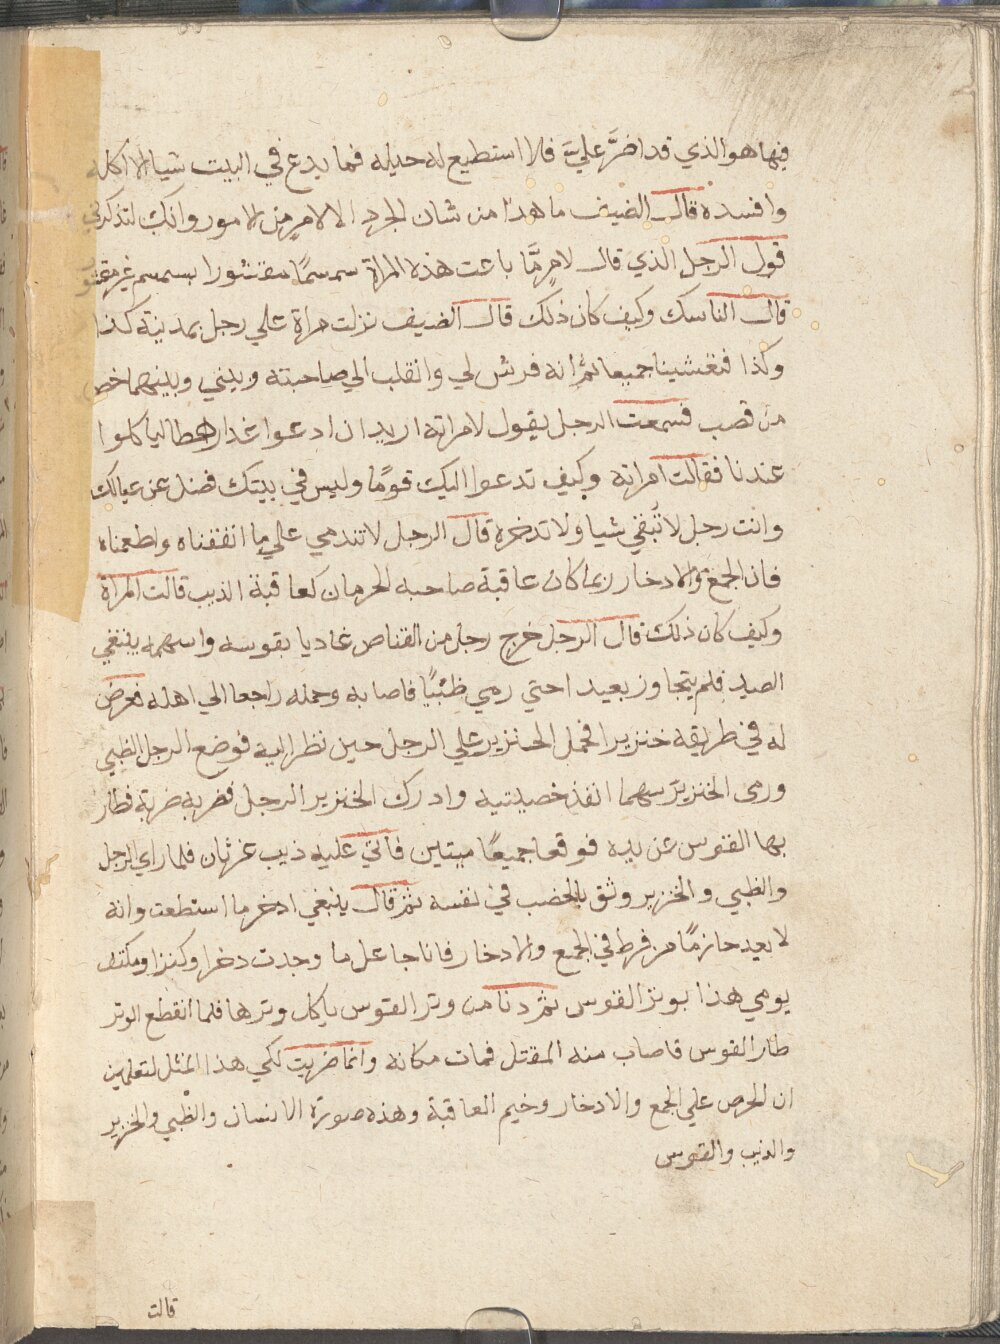 فيها هو الذي قد اضرّ عليّ فلا استطيع له حيله فما يدع في البيت شيا الا اكله
وافسده قال الضيف ما هذا من شان الجرد الا لامر من الامور وانك لتذكرني
قول الرجل الذي قال لامرٍ مّا باعت هذه المراة سمسمًا مقشورا بسمسم غير مقشور
قال الناسك وكيف كان ذلك قال الضيف نزلت مراة علي رجل بمدينة كذا
وكذا فتعشينا جميعا ثم انه فرش لي وانقلب الي صاحبته وبيني وبينهما خص
من قصب فسمعت الرجل يقول لامراته اريد ان ادعوا غدا رهطا لياكلوا
عندنا فقالت امراته وكيف تدعوا اليك قومًا وليس في بيتك فضل عن عيالك
وانت رجل لا تُبقي شيا ولا تدخره قال الرجل لا تندمي علي ما انفقناه واطعمناه
فان الجمع والادخار ربما كان عاقبة صاحبه الحرمان كعاقبة الذيب قالت المراة
وكيف كان ذلك قال الرجل خرج رجل من القناص غاديا بقوسه واسهمه يبتغي
الصيد فلم يتجاوز بعيدا حتي رمي ظبيًا فاصابه وحمله راجعا الي اهله فعرض
له في طريقه خنزيرا فحمل الخنزير علي الرجل حين نظر اليه فوضع الرجل الظبي
ورمى الخنزيرَ سهما انفذ خصيتيه وادرك الخنزير الرجل فضربه ضربة فطار
بها القوس عن يده فوقعا جميعًا ميتين فاتي عليه ذيب غرثان فلما راي الرجل
والظبي والخنزير وثق بالخصب في نفسه ثم قال ينبغي ادخر ما استطعت وانه
لا يعد حازمًا من فرط في الجمع والادخار فانا جاعل ما وجدت دخرا وكنزا ومكتف
يومي هذا بوتر القوس ثم دنا من وتر القوس ياكل وترها فلما انقطع الوتر
طار القوس فاصاب منه المقتل فمات مكانه وانما ضربت لكي هذا المثل لتعلمين
ان الحرص علي الجمع والادخار وخيم العاقبة وهذه صورة الانسان والظبي والخنزير
والذيب والقوس
قالت